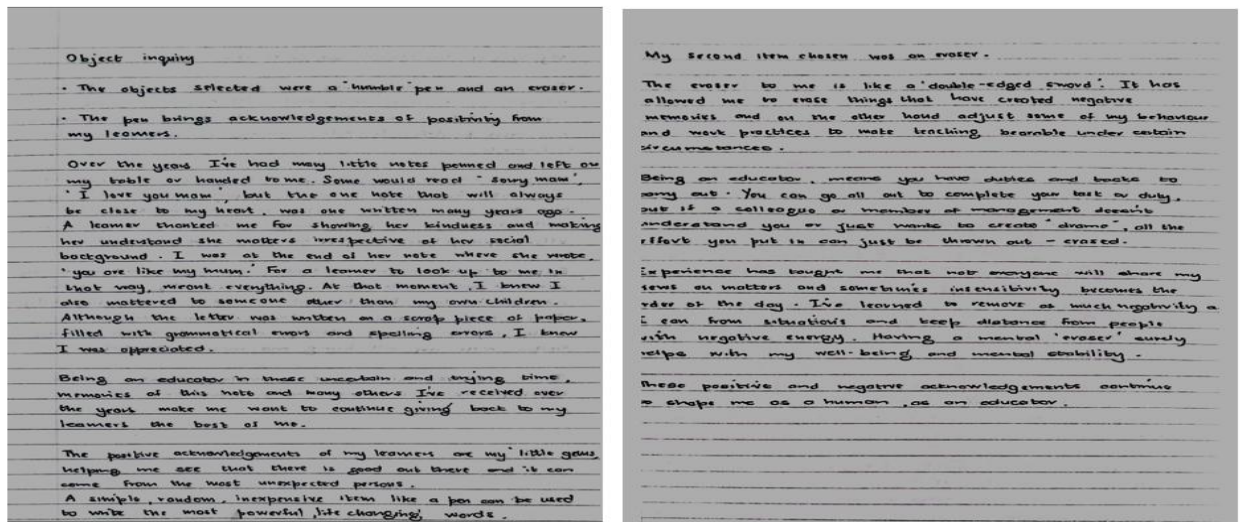 Object inquiry
• The objects selected were a "humble" pen and an eraser.
• The pen brings acknowledgements of positivity from
my learners.
Over the years I've had many little notes penned and left on
my table or handed to me. Some would read "sorry mam",
"I love you mam", but the one note that will always
be close to my heart, was one written many years ago.
A learner thanked me for showing her kindness and making
her understand she matters irrespective of her social
background. I was at the end of her note where she wrote,
"you are like my mum." For a learner to look up to me in
that way, meant everything. At that moment, I knew I
also mattered to someone other than my own children.
Although the letter was written on a scrap piece of paper,
filled with grammatical errors and spelling errors, I knew
I was appreciated.
Being an educator in these uncertain and trying time,
memories of this note and many others I've received over
the years make me want to continue giving back to my
learners the best of me.
The positive acknowledgements of my learners are my "little gems,
helping me see that there is good out there and it can
come from the most unexpected persons.
A simple, random, inexpensive item like a pen can be used
to write the most powerful, life changing, words.
My second item chosen was an eraser.
The eraser to me is like a "double-edged sword". It has
allowed me to erase things that have created negative
memories and on the other hand adjust some of my behaviour
and work practices to make teaching bearable under certain
circumstances.
Being an educator, means you have duties and tasks to
carry out. You can go all out to complete your task or duty,
but if a colleague or member of management doesn't
understand you or just wants to create "drama", all the
effort you put in can just be thrown out - erased.
Experience has taught me that not everyone will share my
views on matters and sometimes insensitivity becomes the
order of the day. I've learned to remove as much negativity as
I can from situations and keep distance from people
with negative energy. Having a mental "eraser" surely
helps with my well-being and mental stability.
These positive and negative acknowledgements continue
to shape me as a human, as an educator.